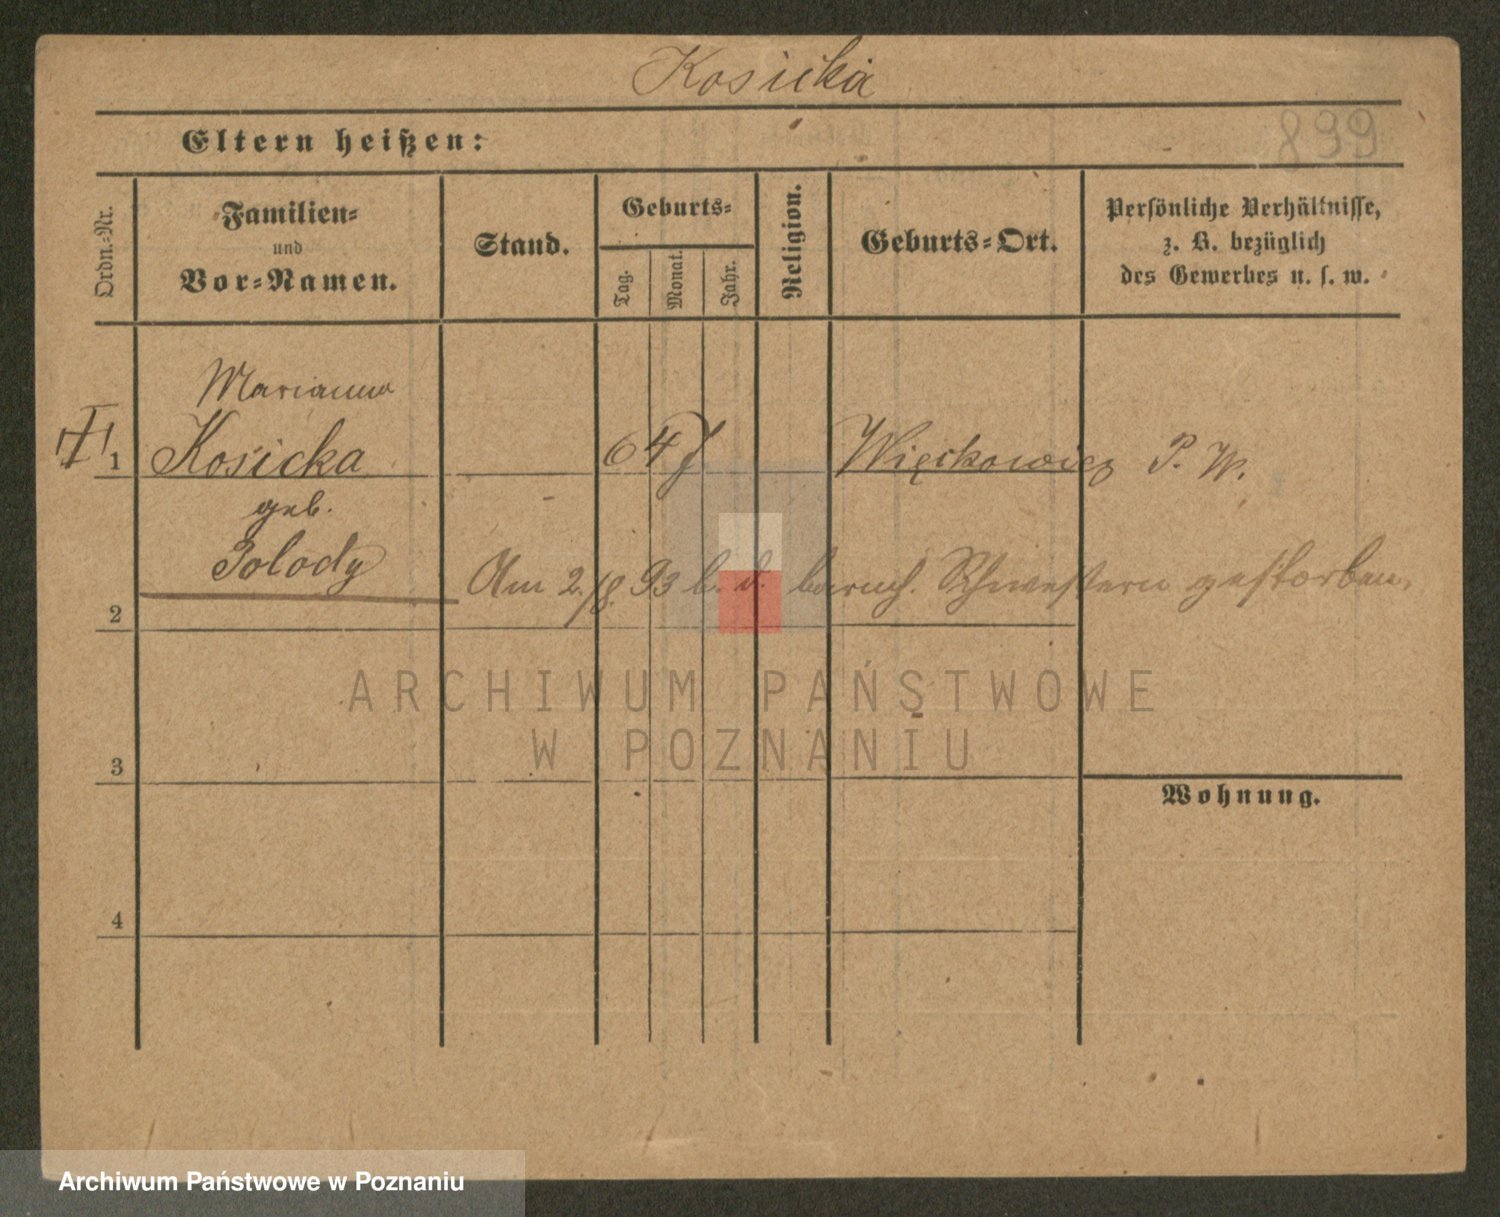 Kosicka
899
Eltern heißen:
Ordn.-Nr.
Familien-
und
Vor-Namen.
Stand.
Geburts-
Tag.
Monat.
Jahr.
Religion.
Geburts-Ort.
Persönliche Verhältnisse,
z. B. bezüglich
des Gewerbes u. s. w.
Marianna
1 Kosicka 64 J Więckowice P. W.
geb.
Polody
Am 2./8. 93 b. d. barmh. Schwestern gestorben.
2
ARCHIWUM PAŃSTWOWE
W POZNANIU
3
Wohnung.
4
Archiwum Państwowe w Poznaniu